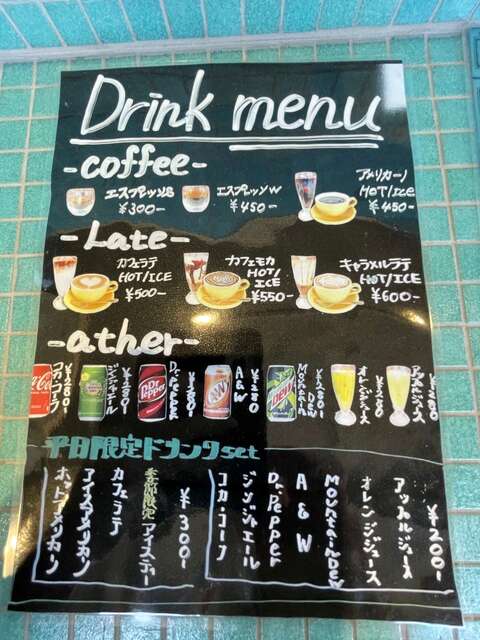 Drink menu
-coffee-
エスプレッソS
¥300-
エスプレッソW
¥450-
アメリカーノ
HOT/ICE
¥450-
-Late-
カフェラテ
HOT/ICE
¥500-
カフェモカ
HOT/
ICE
¥550-
キャラメルラテ
HOT/ICE
¥600-
-ather-
コカ・コーラ
¥280-
ジンジャエール
¥280-
Dr.Pepper
¥280-
A&W
¥280-
Mountain
DEW
¥280-
オレンジジュース
¥280-
アップルジュース
¥280-
平日限定ドリンクset
¥200-
アップルジュース
オレンジジュース
Mountain Dew
A & W
Dr.Pepper
ジンジャエール
コカ・コーラ
¥300-
季節限定 アイスティー
カフェラテ
アイスアメリカン
ホットアメリカン